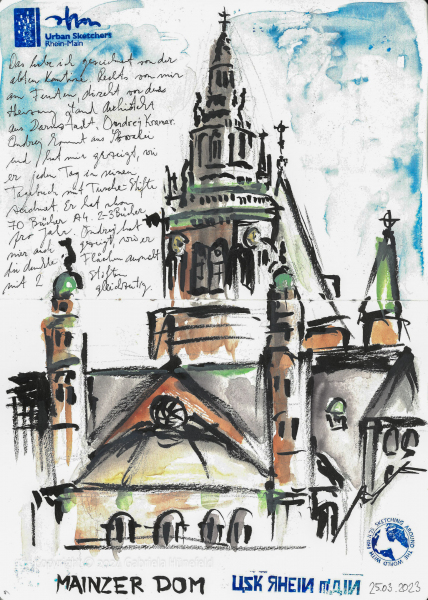 Urban Sketchers
Rhein-Main
Das habe ich gezeichnet von der
alten Kantine. Rechts von mir
am Fenster, direkt vor
Heizung stand Architekt
aus Darmstadt. Ondrej Kramar.
Ondrej kommt aus Slowakei
und hat mir gezeigt, wie
er jeden Tag in seinen
Tagebuch mit Tusche-Stifte
zeichnet. Er hat schon
70 Bücher A4. 2-3 Bücher
pro Jahr. Ondrej hat
mir auch gezeigt, wie er
die dunkle Flächen ausmalt
mit 2 Stiften
gleichzeitig.
SKETCHING AROUND THE WORLD WITH
MAINZER DOM
USK RHEIN MAIN
25.03.2023